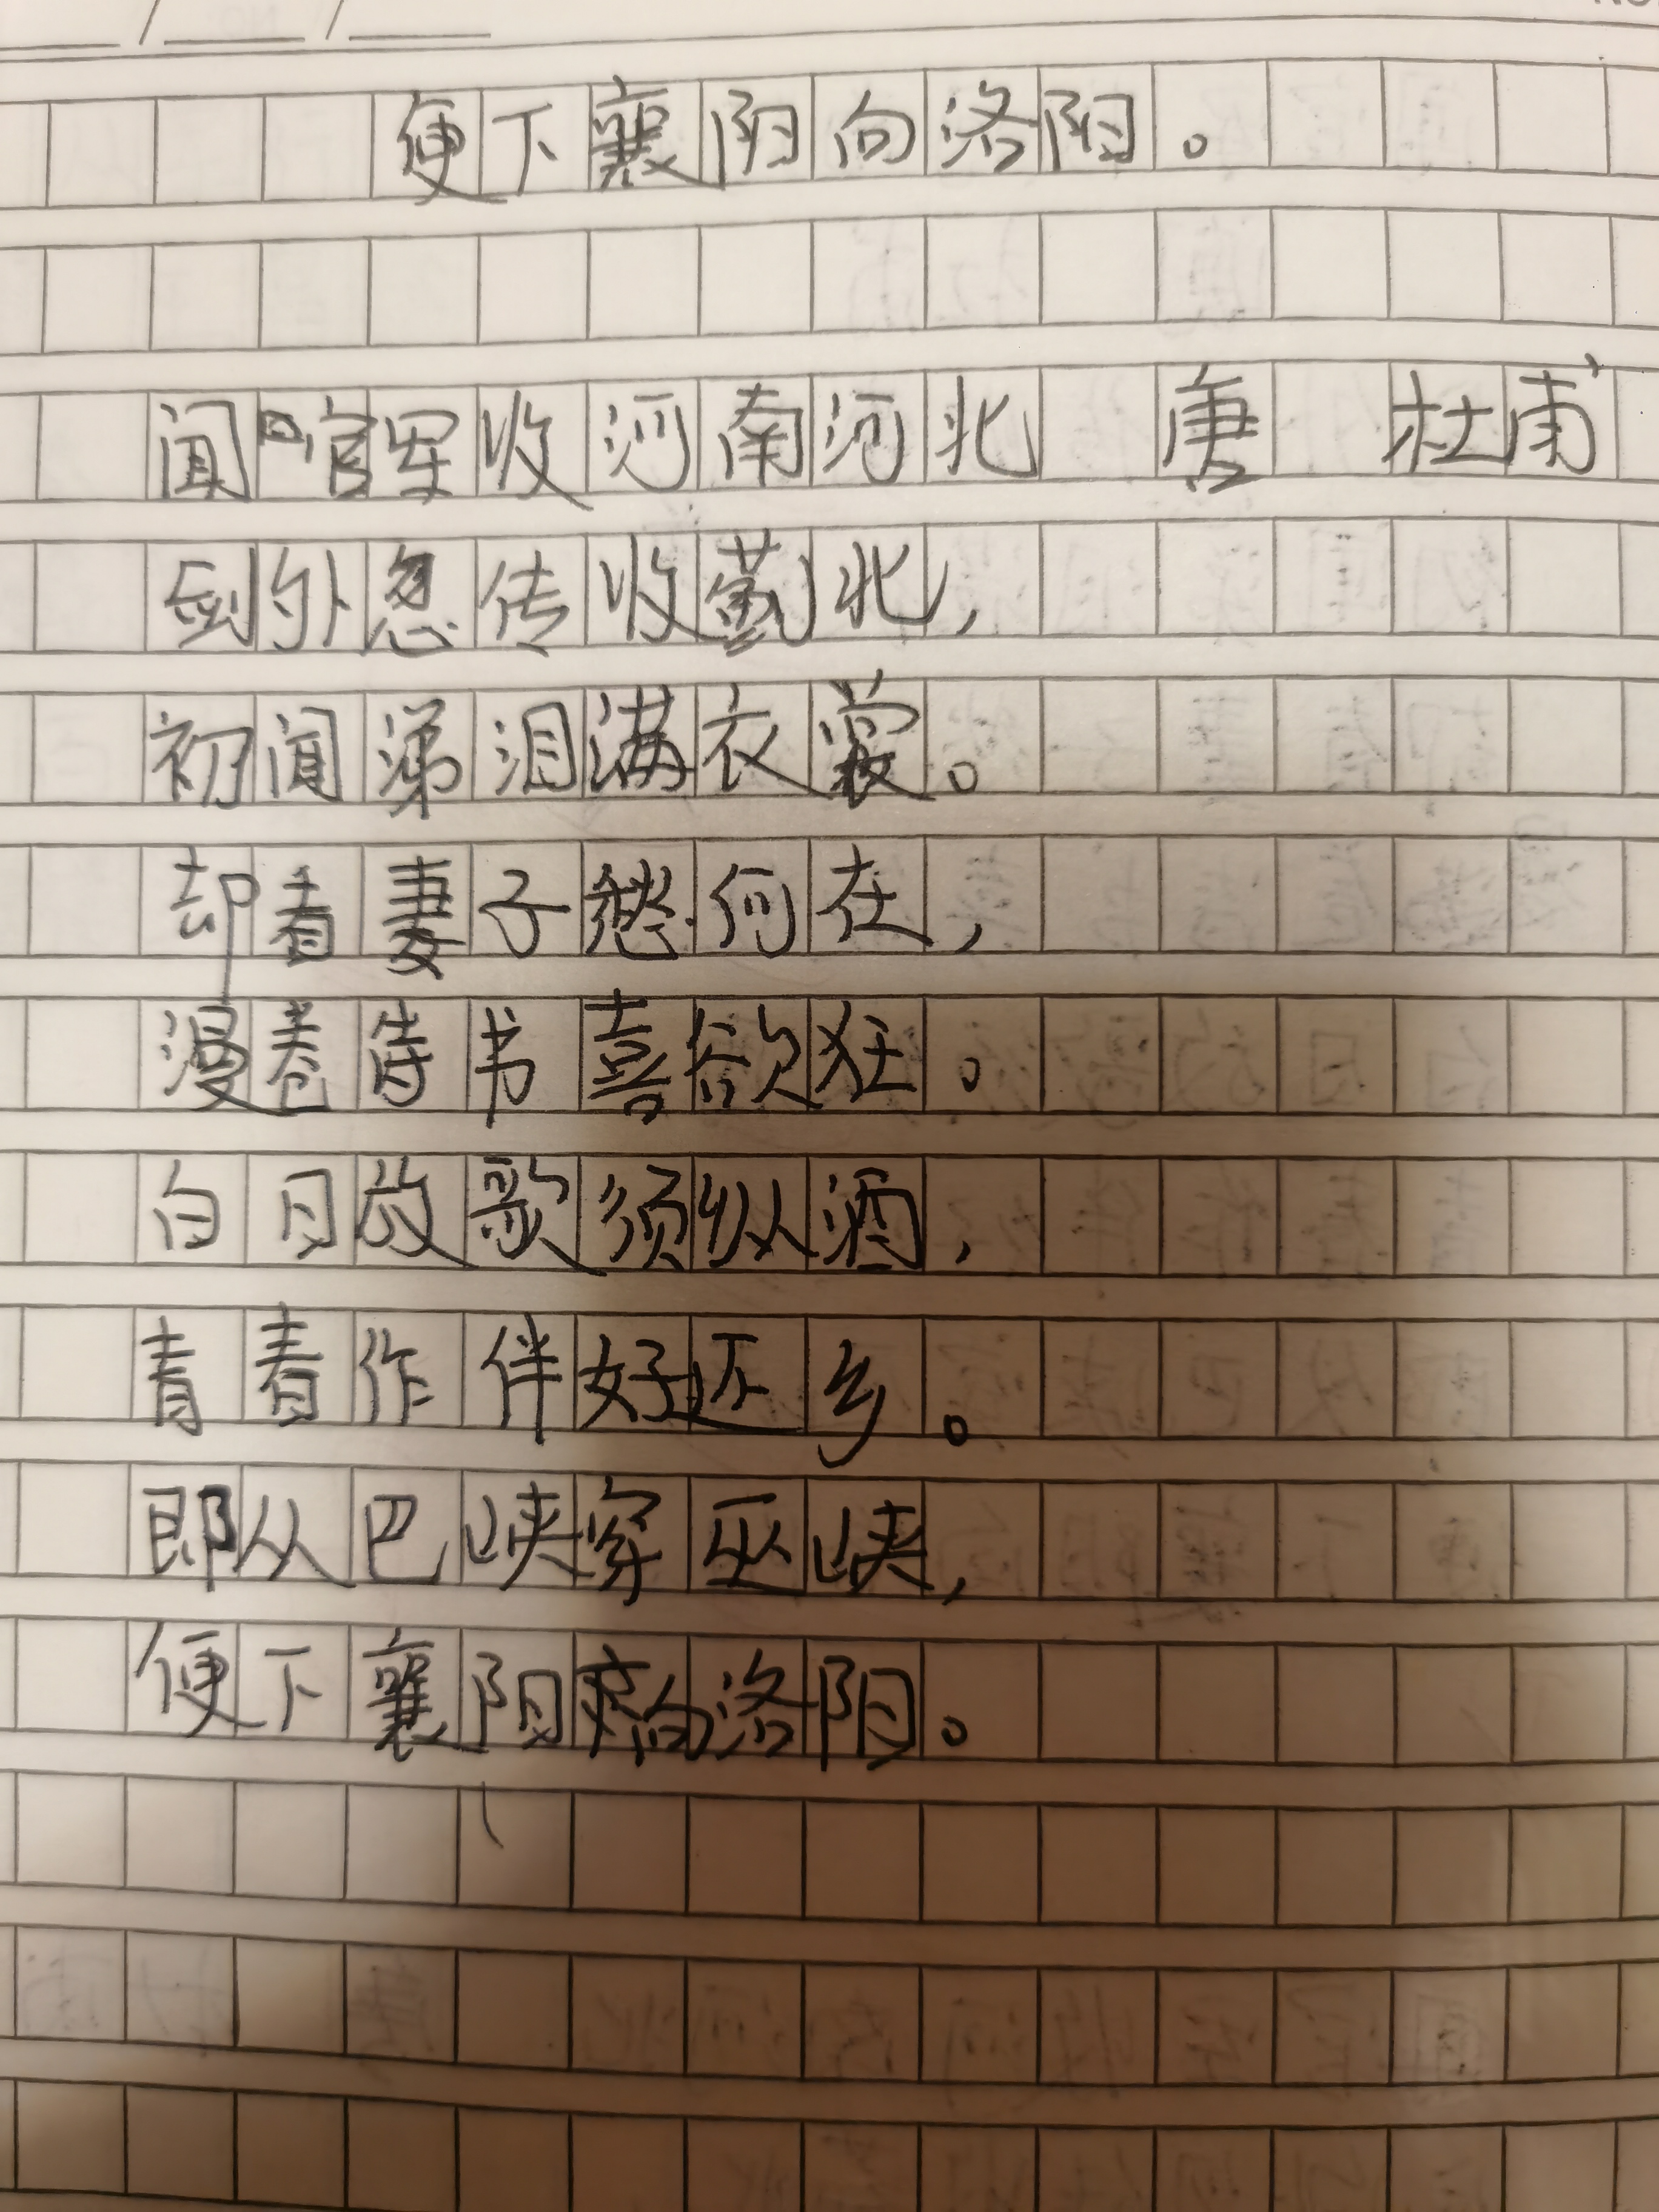 便下襄阳向洛阳。
闻官军收河南河北 唐 杜甫
剑外忽传收蓟北,
初闻涕泪满衣裳。
却看妻子愁何在,
漫卷诗书喜欲狂。
白日放歌须纵酒,
青春作伴好还乡。
即从巴峡穿巫峡,
便下襄阳向洛阳。